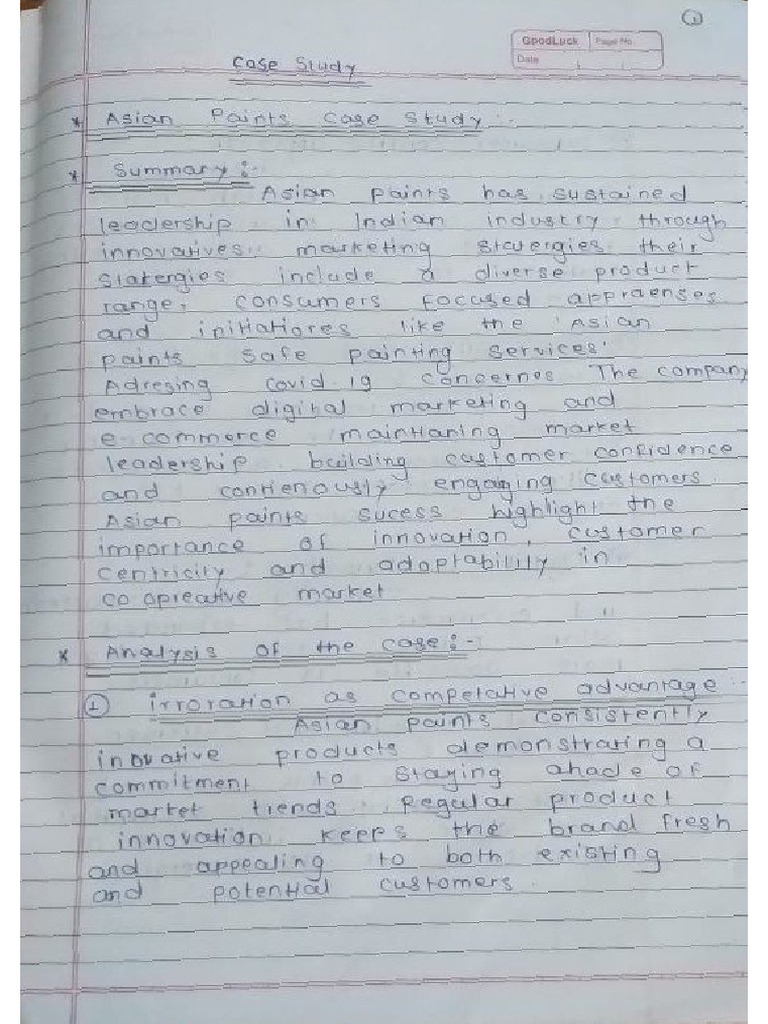 1
GoodLuck Page No.
Date
Case Study
* Asian Paints Case Study :-
* Summary :-
Asian paints has sustained
leadership in Indian industry through
innovatives marketing stratergies their
statergies include a diverse product
range, consumers focused appraenses
and initiatiores like the 'Asian
paints safe painting services'
Adresing covid.19 concernes The company
embrace digital marketing and
e-commerce maintianing market
leadership building customer confidence
and contienously engaging customers.
Asian paints sucess highlight the
importance of innovation, customer
centricity and adaptability in
co opreative market
* Analysis of the case :-
① irroration as competative advantage :-
Asian paints consistently
inovative products demonstrating a
commitment to staying ahade of
market trends. Regular product
innovation keeps the brand fresh
and appealing to both existing
and potential customers.